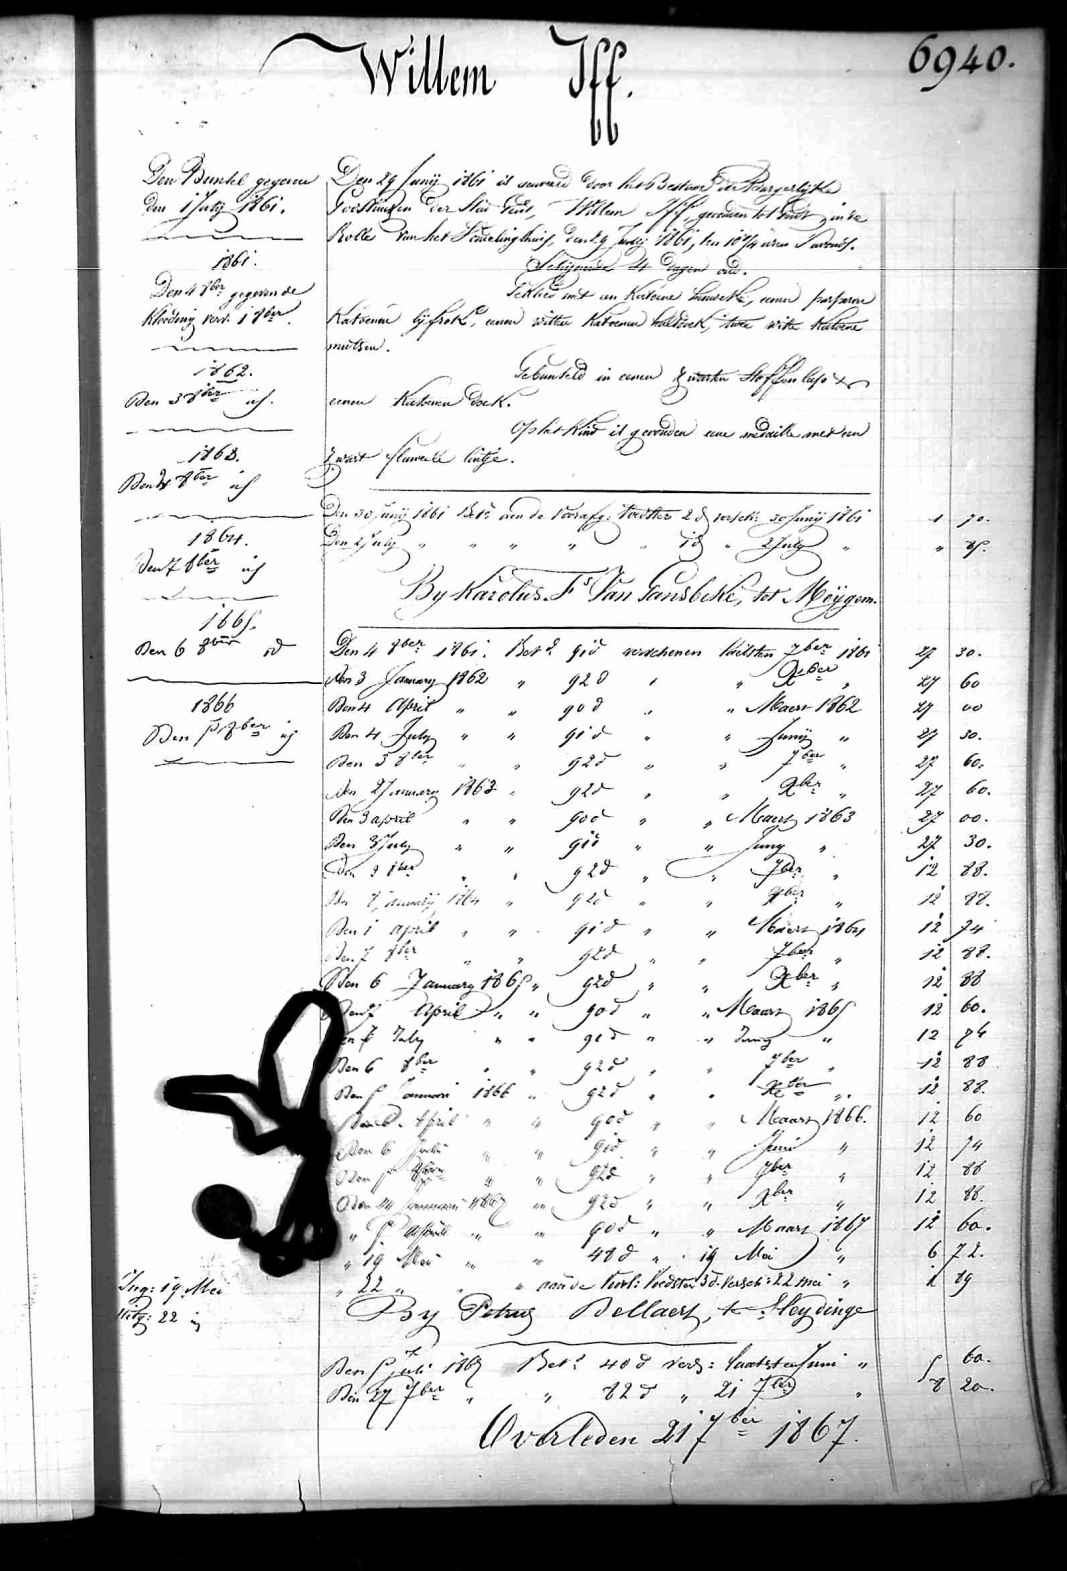 Willem Iff.
6940.
Den Bunsel gegeven
den 1 July 1861.
1861.
Den 4 8ber gegeven de
Kleeding vers. 1 8ber.
1862.
Den 3 8ber
1863.
Den 8ber
1864.
Den 7 8ber
1865.
Den 6 8ber
1866
Den 5 8ber
Ing: 19 Mei
Uitg: 22
Den 29 Junij 1861 is door het Bestuur der Burgerlijke
Godshuizen der Stad Gend, Willem Iff, gevonden tot Gend in de
Rolle van het Vondelinghuis, den 29 Junij 1861, ten 10 3/4 uren 's avonds.
Schijnende 4 dagen oud.
Gekleed met een Katoene, eenen
Katoenen, eenen witten Katoenen halsdoek, twee witte Katoene
mutsen.
Gebunseld in eenen zwarten Stoffen
eenen Katoenen doek.
Op het Kind is gevonden eene medaille met een
zwart fluweele lintje.
Den 30 Junij 1861 Bet. aan de Voorafg. Voedster 2 d versch: 30 Junij 1861 1 70.
Den 2 July " " " " " 1 d " 2 July " " 85.
By Karolus Fs Van Gansbeke, tot Meijgem.
Den 4 8ber 1861. Bet. 91 d verschenen lestden 7ber 1861 27 30.
Den 3 January 1862 " 92 d " " Xber " 27 60
Den 4 April " " 90 d " " Maert 1862 27 00
Den 4 July " " 91 d " " Junij " 27 30.
Den 3 8ber " " 92 d " " 7ber " 27 60.
Den 2 January 1863 " 92 d " " Xber " 27 60.
Den 3 april " " 90 d " " Maert 1863 27 00.
Den 3 July " " 91 d " " Juny " 27 30.
Den 2 8ber " " 92 d " " 7ber " 12 88.
Den 8 January 1864 " 92 d " " Xber " 12 88.
Den 1 April " " 91 d " " Maert 1864 12 74
Den 7 8ber " " 92 d " " 7ber " 12 88.
Den 6 January 1865 " 92 d " " Xber " 12 88
Den 7 April " " 90 d " " Maart 1865 12 60.
Den 7 July " " 91 d " " Juny " 12 74
Den 6 8ber " " 92 d " " 7ber " 12 88
Den 5 Januari 1866 " 92 d " " Xber " 12 88.
Den 6 April " " 90 d " " Maart 1866. 12 60
Den 6 Juli " " 91 d " " Juni " 12 74
Den 5 8ber " " 92 d " " 7ber " 12 88
Den 4 Januari 1867 " 92 d " " Xber " 12 88.
" 5 April " " 90 d " " Maart 1867 12 60.
" 19 Mei " " 48 d " 19 Mei " 6 72.
" 22 " " " aan de Voedster 3 d. versch: 22 mei " 1 89
By Petrus Bellaert, te Sleydinge
Den 5 Juli 1867 Bet. 40 d vers: laatsten Juni " 5 60.
Den 27 7ber " " 82 d " 21 7ber " 8 20.
Overleden 21 7ber 1867.